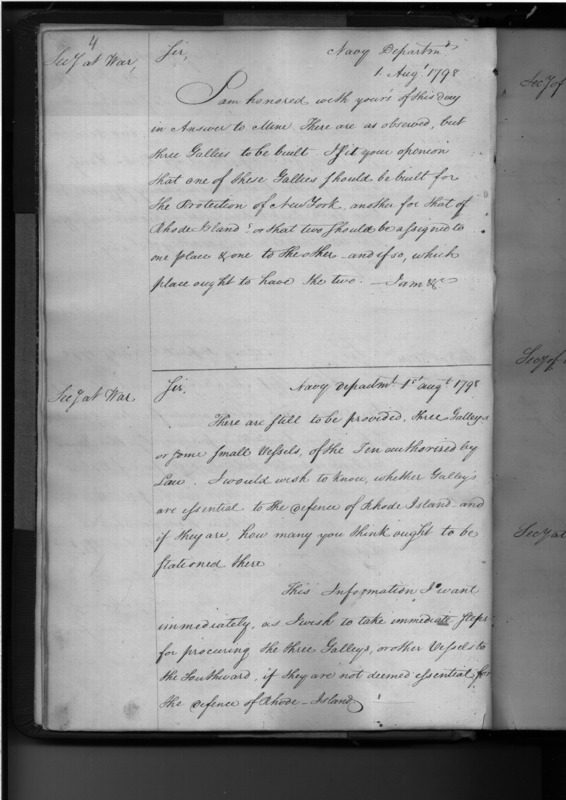 4
Secy at War,
Sir,
Navy Departmt
1 Augt 1798
I am honored with yours of this day
in Answer to Mine There are as observed, but
three Gallies to be built Is it your openion
that one of these Gallies should be built for
the Protection of New York, another for that of
Rhode Island? or that two should be assigned to
one place & one to the other and if so, which
place ought to have the two. — I am &c
Secy at War
Sir,
Navy departmt 1st augt 1798
There are still to be provided, three Galleys
or some small Vessels, of the Ten authorised by
Law. I would wish to know, whether Galleys
are essential to the defence of Rhode Island and
if they are, how many you think ought to be
stationed there
This Information I want
immediately, as I wish to take immediate steps
for procuring the three Galleys, or other Vessels to
the Southward, if they are not deemed essential for
the defence of Rhode-Island
Secy of
Secy of
Secy at